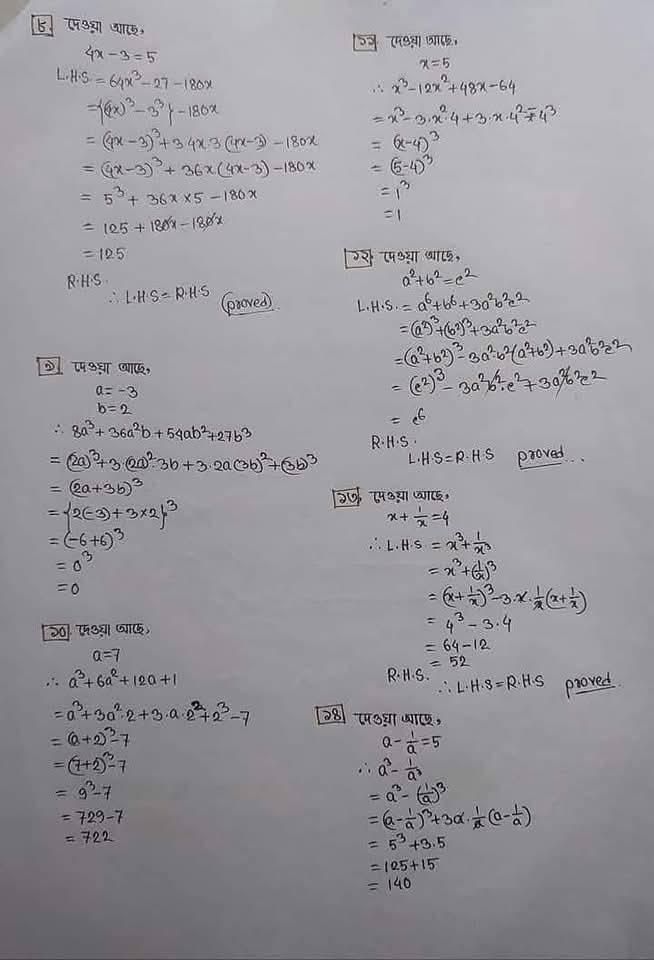 ৮. দেওয়া আছে,
4x-3=5
L.H.S. = 64x³-27-180x
= {(4x)³-3³}-180x
= (4x-3)³+3.4x.3(4x-3)-180x
= (4x-3)³+36x(4x-3)-180x
= 5³+36x×5-180x
= 125+180x-180x
= 125
R.H.S.
∴ L.H.S=R.H.S (proved).
৯. দেওয়া আছে,
a=-3
b=2
∴ 8a³+36a²b+54ab²+27b³
= (2a)³+3.(2a)².3b+3.2a(3b)²+(3b)³
= (2a+3b)³
= {2(-3)+3×2}³
= (-6+6)³
= 0³
= 0
১০. দেওয়া আছে,
a=7
∴ a³+6a²+12a+1
= a³+3a².2+3.a.2²+2³-7
= (a+2)³-7
= (7+2)³-7
= 9³-7
= 729-7
= 722
১১. দেওয়া আছে,
x=5
∴ x³-12x²+48x-64
= x³-3.x².4+3.x.4²-4³
= (x-4)³
= (5-4)³
= 1³
= 1
১২. দেওয়া আছে,
a²+b²=c²
L.H.S. = a⁶+b⁶+3a²b²c²
= (a²)³+(b²)³+3a²b²c²
= (a²+b²)³-3a².b²(a²+b²)+3a²b²c²
= (c²)³-3a²b².c²+3a²b²c²
= c⁶
R.H.S.
L.H.S=R.H.S proved...
১৩. দেওয়া আছে,
x+1/x=4
∴ L.H.S = x³+1/x³
= x³+(1/x)³
= (x+1/x)³-3.x.1/x(x+1/x)
= 4³-3.4
= 64-12
= 52
R.H.S.
∴ L.H.S=R.H.S proved.
১৪. দেওয়া আছে,
a-1/a=5
∴ a³-1/a³
= a³-(1/a)³
= (a-1/a)³+3a.1/a(a-1/a)
= 5³+3.5
= 125+15
= 140